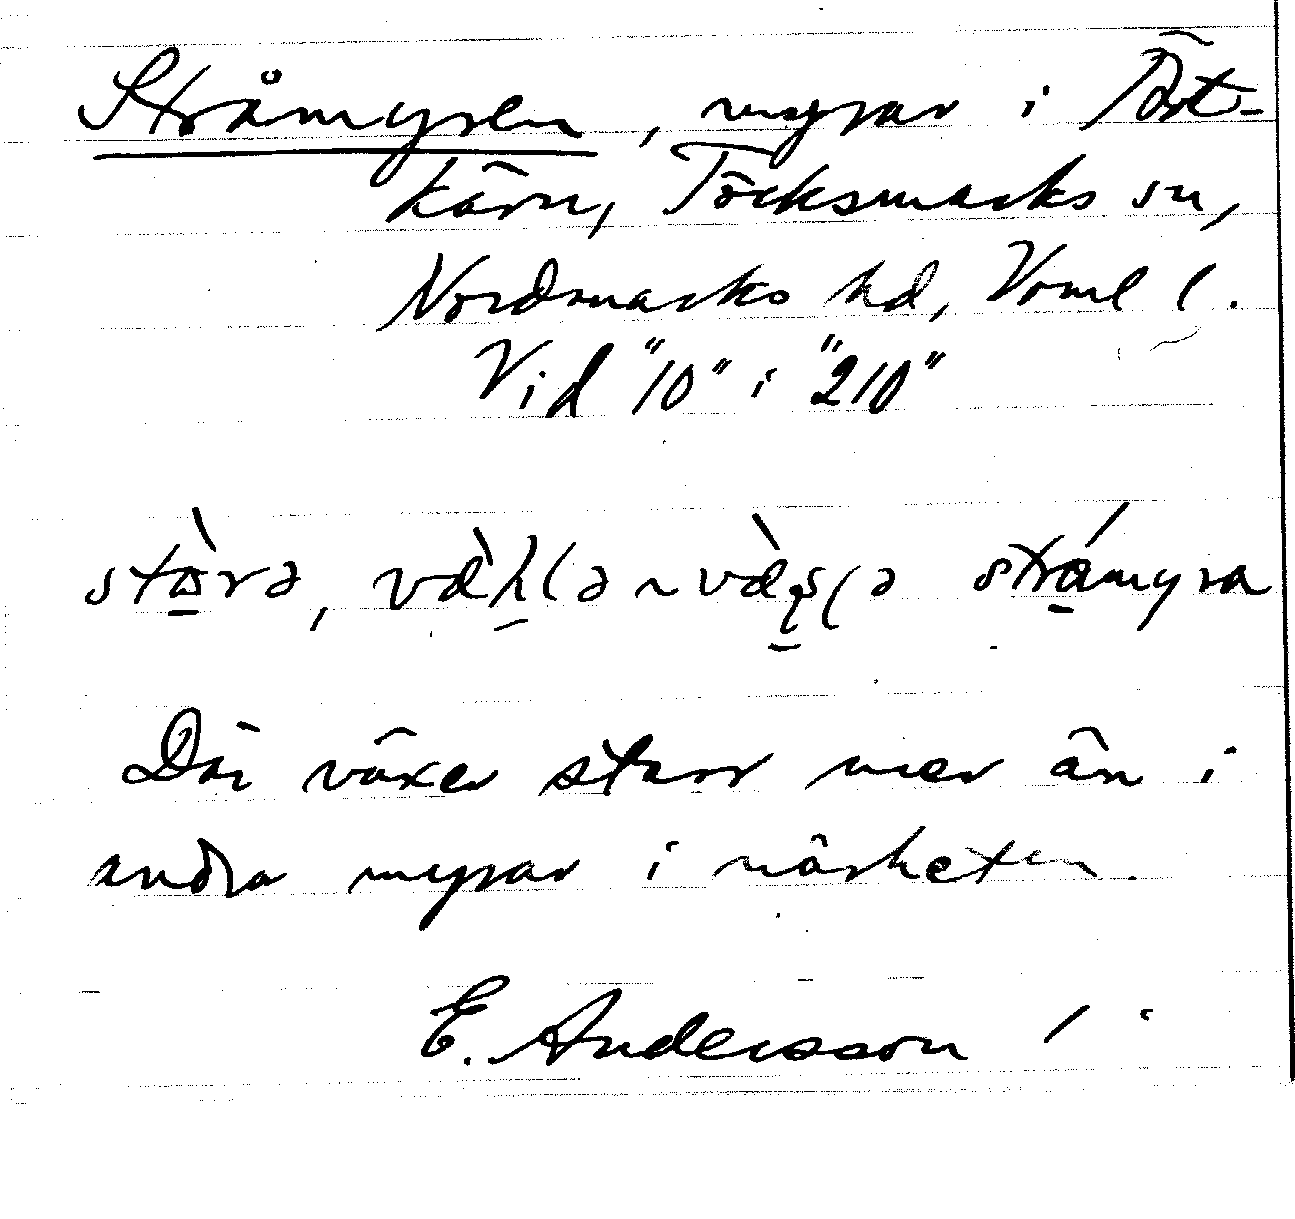 Stråmyren, myrar i Töt-
kärn, Töcksmarks sn,
Nordmarks hd, Vrml l.
Vid "10" i "210"
stårə, vàk̯lə ~ vàs̯lə stråmyra
Där växer starr mer än i
andra myrar i närheten.
E. Andersson